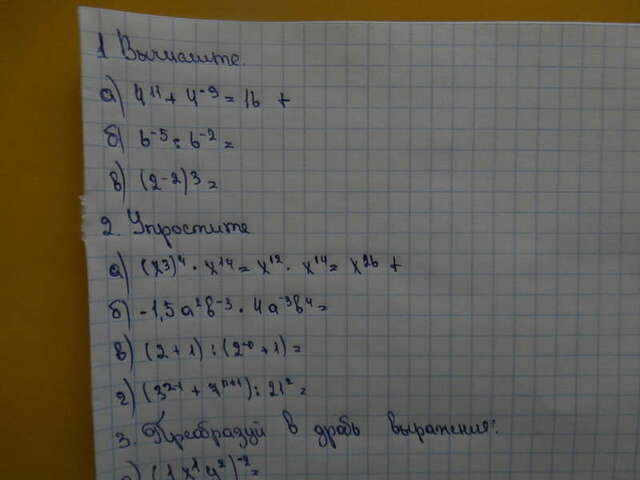 1 Вычислите.
а) 4¹¹ + 4⁻⁹ = 16 +
б) 6⁻⁵ : 6⁻² =
в) (2⁻²)³ =
2. Упростите
а) (x³)⁴ · x¹⁴ = x¹² · x¹⁴ = x²⁶ +
б) -1,5a²b⁻³ · 4a⁻³b⁴ =
в) (2 + 1) : (2⁻⁰ + 1) =
г) (3²⁻¹ + 7ⁿ⁺¹) : 21² =
3. Преобразуй в дробь выражение: